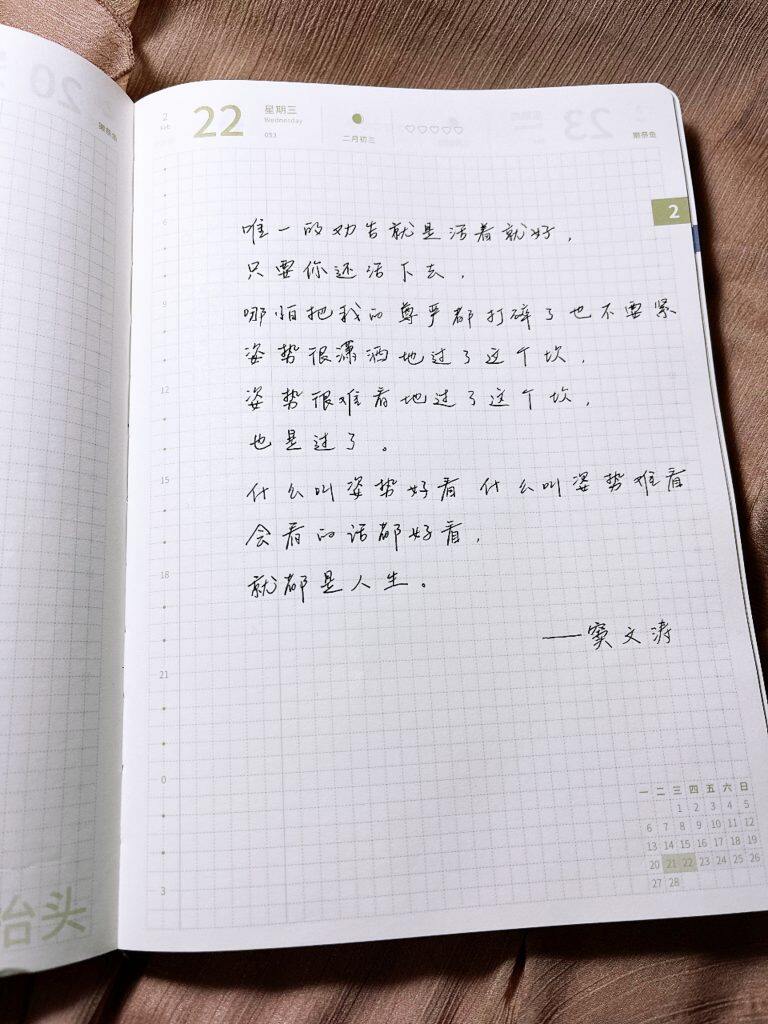 20
2
Feb
22
星期三
Wednesday
053
二月初三
獭祭鱼
2
唯一的劝告就是活着就好，
只要你还活下去，
哪怕把我的尊严都打碎了也不要紧
姿势很潇洒地过了这个坎，
姿势很难看地过了这个坎，
也是过了。
什么叫姿势好看 什么叫姿势难看
会看的话都好看，
就都是人生。
——窦文涛
6
9
12
15
18
21
0
3
抬头
一 二 三 四 五 六 日
1 2 3 4 5
6 7 8 9 10 11 12
13 14 15 16 17 18 19
20 21 22 23 24 25 26
27 28